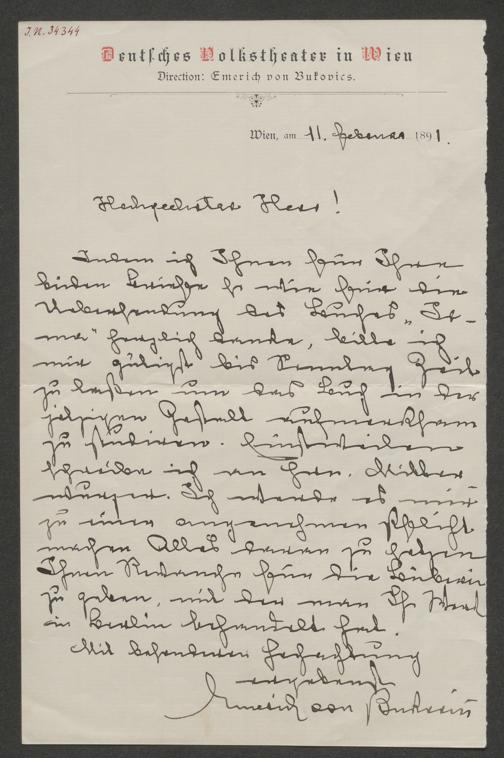 J.N. 34344
Deutsches Volkstheater in Wien
Direction: Emerich von Bukovics.
Wien, am 11. Februar 1891.
Hochgeehrter Herr!
Indem ich Ihnen für Ihre
beiden Briefe so wie für die
Uebersendung des Buches „Ir-
ma“ herzlich danke, bitte ich
mir gütigst bis Sonntag Zeit
zu laßen um das Buch in der
jetzigen Gestalt aufmerksam
zu studiren. Einstweilen
schreibe ich an Hrn. Mitter
wurzer. Ich werde es mir
zu einer angenehmen Pflicht
machen Alles daran zu setzen
Ihnen Revanche für die
zu geben, mit der man Ihr Werk
in Berlin behandelt hat.
Mit besonderer Hochachtung
ergebenst
Emerich von Bukovics